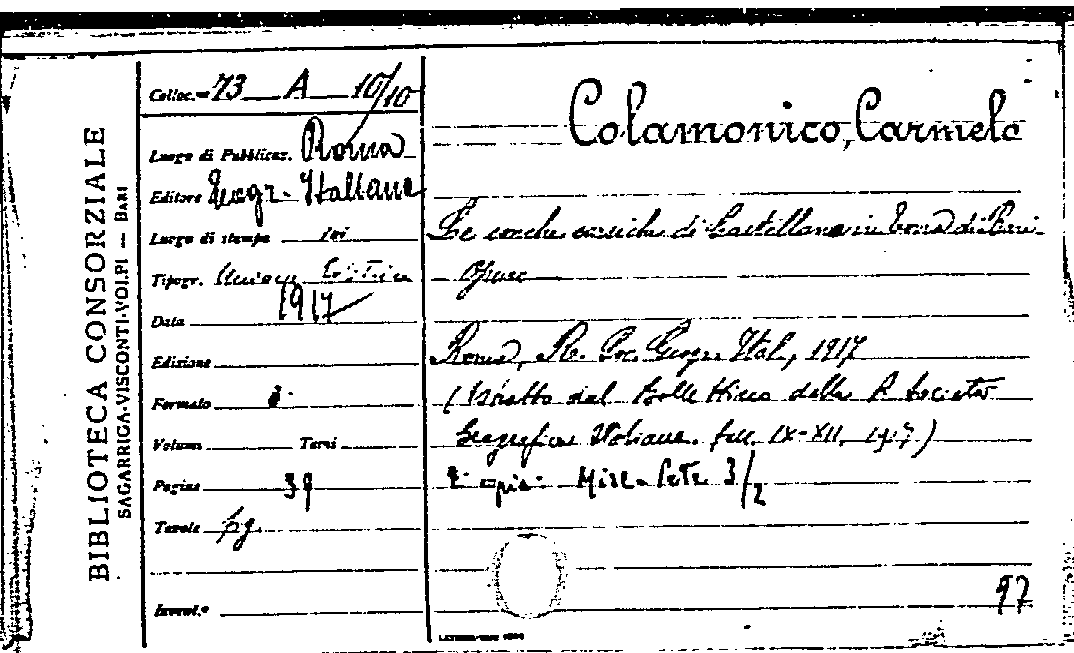 BIBLIOTECA CONSORZIALE
SAGARRIGA-VISCONTI-VOLPI — BARI
Colloc.ne 73 A 10/10
Luogo di Pubblicaz. Roma
Editore Geogr. Italiana
Luogo di stampa ivi
Tipogr. Unione Editrice
Data 1917
Edizione
Formato 8°
Volume Tomi
Pagine 39
Tavole fig.
Invent.°
Colamonico, Carmelo
Le conche carsiche di Castellana in Terra di Bari.
Opusc
Roma, R. Soc. Geogr. Ital., 1917
(Estratto dal Bollettino della R. Società
Geografica Italiana. fasc. IX-XII. 1917.)
2ª copia: Misc. 3/2
97